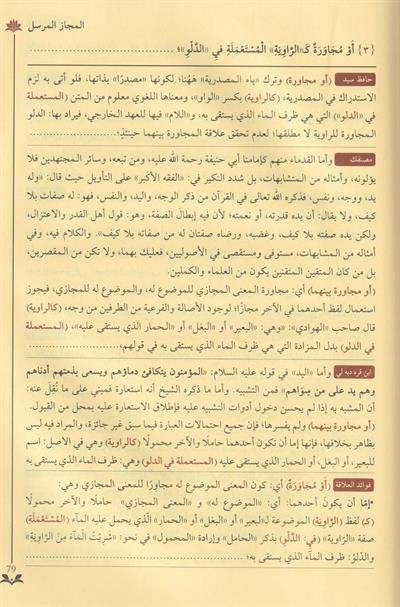 المجاز المرسل
{٣} أَوْ مُجَاوَرَةٌ كَـ«الرَّاوِيَةِ» الْمُسْتَعْمَلَةِ فِي «الدَّلْوِ»؛
حافظ سيد (أو مجاورة) وترك «ياء المصدرية» هٰهُنا؛ لكونها «مصدرًا» بذاتها، فلو أتى به لزم
الاستدراك في المصدرية، (كالراوية) بكسر «الواو»، ومعناها اللغوي معلوم من المتن (المستعملة
في «الدلو») التي هي ظرف الماء الذي يستقى به، و«اللام» فيها للعهد الخارجي، فيراد بها: الدلو
المجاورة للراوية لا مطلقها؛ لعدم تحقق علاقة المجاورة بينهما حينئذٍ؛
مصنفك وأما القدماء منهم كإمامنا أبي حنيفة رحمة الله عليه، ومن تبعه، وسائر المجتهدين فلا
يؤولونه، وأمثاله من المتشابهات، بل شدد النكير في: «الفقه الأكبر» على التأويل حيث قال: «وله
يد، ووجه، ونفس، فذكره الله تعالى في القرآن من ذكر الوجه، واليد، والنفس، فهو: له صفات بلا
كيف، ولا يقال: أن يده قدرته، أو نعمته؛ لأن فيه إبطال الصفة، وهو: قول أهل القدر والاعتزال،
ولكن يده صفته بلا كيف، وغضبه، ورضاه صفتان له من صفاته بلا كيف». والكلام فيه، وفي
أمثاله من المشابهات، مستوفى ومستقصى في الأصوليين، فعليك بهما، ولا تكن من المقصرين،
بل من كان المتقين المتقنين يكون من العلماء والكملين.
(أو مجاورة بينهما) أي: مجاورة المعنى المجازي للموضوع له، والموضوع له للمجازي، فيجوز
استعمال لفظ أحدهما في الآخر مجازًا؛ لوجود الأصالة والفرعية من الطرفين من وجه، (كالراوية)
قال صاحب «الهوادي»: «وهي: «البعير» أو «البغل» أو «الحمار الذي يستقى عليه»»، (المستعملة
في الدلو) بدل المزادة التي هي ظرف الماء الذي يستقى به في قولهم،
ابن قره دپه لي وأما «اليد» في قوله عليه السلام: «المؤمنون يتكافئ دماؤهم ويسعى بذمتهم أدناهم
وهم يد على من سواهم» فمن التشبيه. وأما ما ذكره الشيخ أنه استعارة فمبني على ما نُقِل عنه:
أن المشبه به إذا لم يحسن دخول أدوات التشبيه عليه فإطلاق الاستعارة عليه بمحل من القبول.
(أو مجاورة بينهما) ولم يفسرها؛ فإن جميع احتمالات العبارة فيما سبق غير جائزة، والمراد فيه ليس
بظاهر بخلافها، فإنها إما أن تكون أحدهما حاملًا والآخر محمولًا (كالراوية) وهي في الاصل: اسم
للبعير، أو البغل، أو الحمار الذي يستقى عليه (المستعملة في الدلو) وهي: ظرف الماء الذي يستقى به
فوائد العلاقة (أَو مُجَاوَرَةٌ) أي: كون المعنى الموضوع له مجاورًا للمعنى المجازي وهي:
•إمّا أن يكونَ أحدهما: أي: «الموضوع له» و «المعنى المجازي» حاملًا والآخر محمولًا
(كـ) لفظ (الرَّاوِيَةِ) الموضوعة لـ«البعير» أو «البغل» أو «الحمار» الَّذي يحمل عليه المآء (الْمُسْتَعْمَلَةِ)
صفة «الرّاوية» (في: الدَّلْوِ) بذكر «الحامل» وإرادة «المحمول» في نحو: «شَرِبْتُ الْمَآءَ مِنَ الرَّاوِيَةِ»
والدَّلوُ: ظرف المآء الّذي يستقى به؛
79